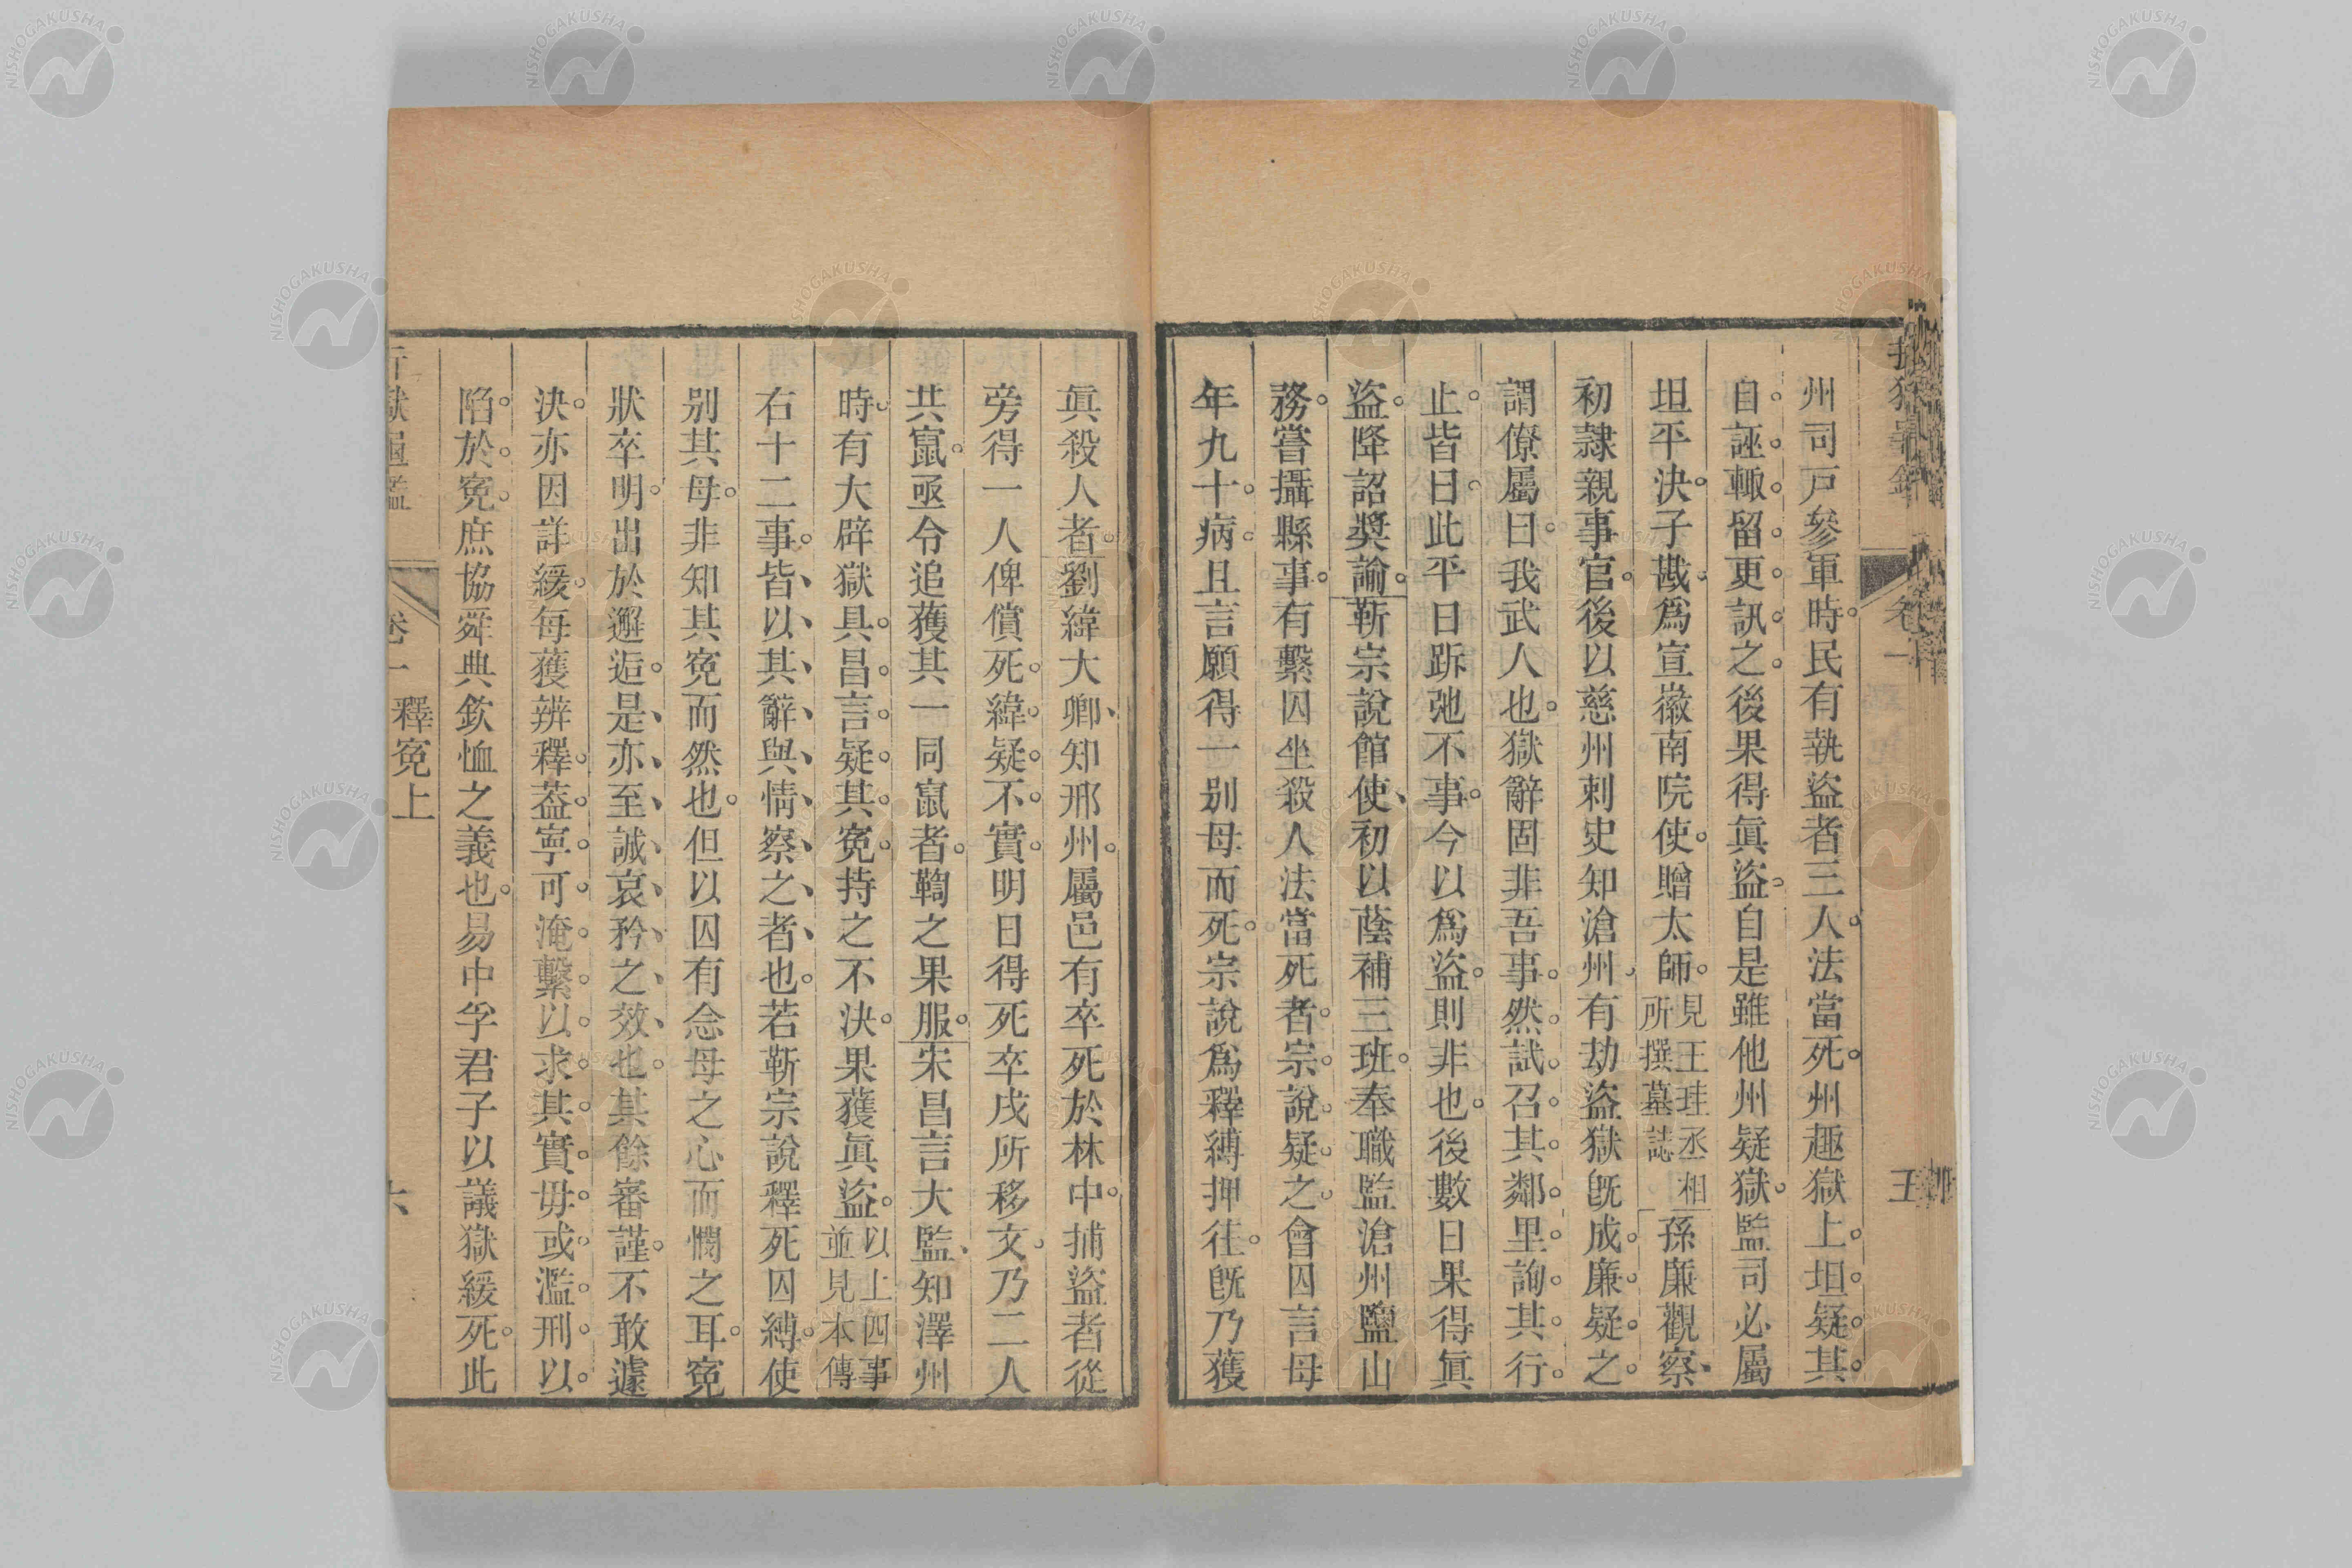 州司戸參軍時。民有執盜者三人。法當死。州趣獄上。坦。疑。其。
自。誣。輙。留。更。訊。之。後果得眞盜。自是雖他州疑獄。監司必屬
坦平決。子戡。爲宣徽南院使。贈太師。見王珪丞相所撰墓誌孫廉觀察、
初隷親事官。後以慈州刺史知滄州。有劫盜獄旣成。廉。疑。之。
謂僚屬曰。我武人也。獄辭固非吾事。然。試。召。其。鄰。里。詢。其。行。
止。皆曰。此平日跅弛不事。今以爲盜。則非也。後數日果得眞
盜。降詔奬諭。靳宗說館使、初以蔭補三班。奉職監滄州鹽山
務。嘗攝縣事。有繫囚坐殺人法當死者。宗。說。疑。之。會囚言母
年九十。病。且言願得一別母而死。宗說爲釋縛押往。旣乃獲
眞殺人者。劉緯大卿、知邢州。屬邑有卒死於林中。捕盜者從
旁得一人俾償死。緯。疑。不。實。明日得死卒戍所移文。乃二人
共竄。亟令追獲其一同竄者。鞫之果服。宋昌言大監、知澤州
時。有大辟獄具。昌。言。疑。其。寃。持之不決。果獲眞盜。以上四事並見本傳
右十二事。皆、以、其、辭、與、情、察、之、者、也。若靳宗說釋死囚縛。使
別其母。非知其寃而然也。但以囚有念母之心而憫之耳。寃
狀卒明。出於邂逅。是、亦、至、誠、哀、矜、之、效、也。其餘審謹。不敢遽
決。亦因詳緩。每獲辨釋。葢。寧。可。淹。繫。以。求。其。實。毋。或。濫。刑。以。
陷。於。寃。庶協舜典欽恤之義也。易中孚君子以議獄緩死。此
卷一 釋寃上